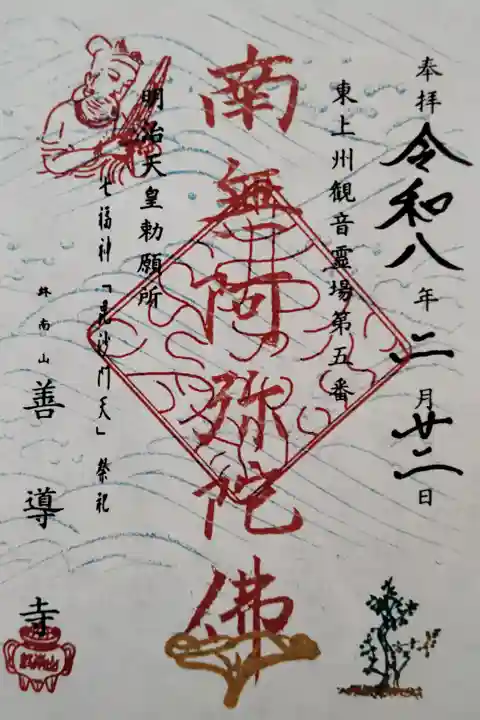 奉拝
令和八年二月廿二日
東上州観音霊場第五番
南無阿弥陀佛
明治天皇勅願所
七福神「毘沙門天」祭礼
終南山 善導寺